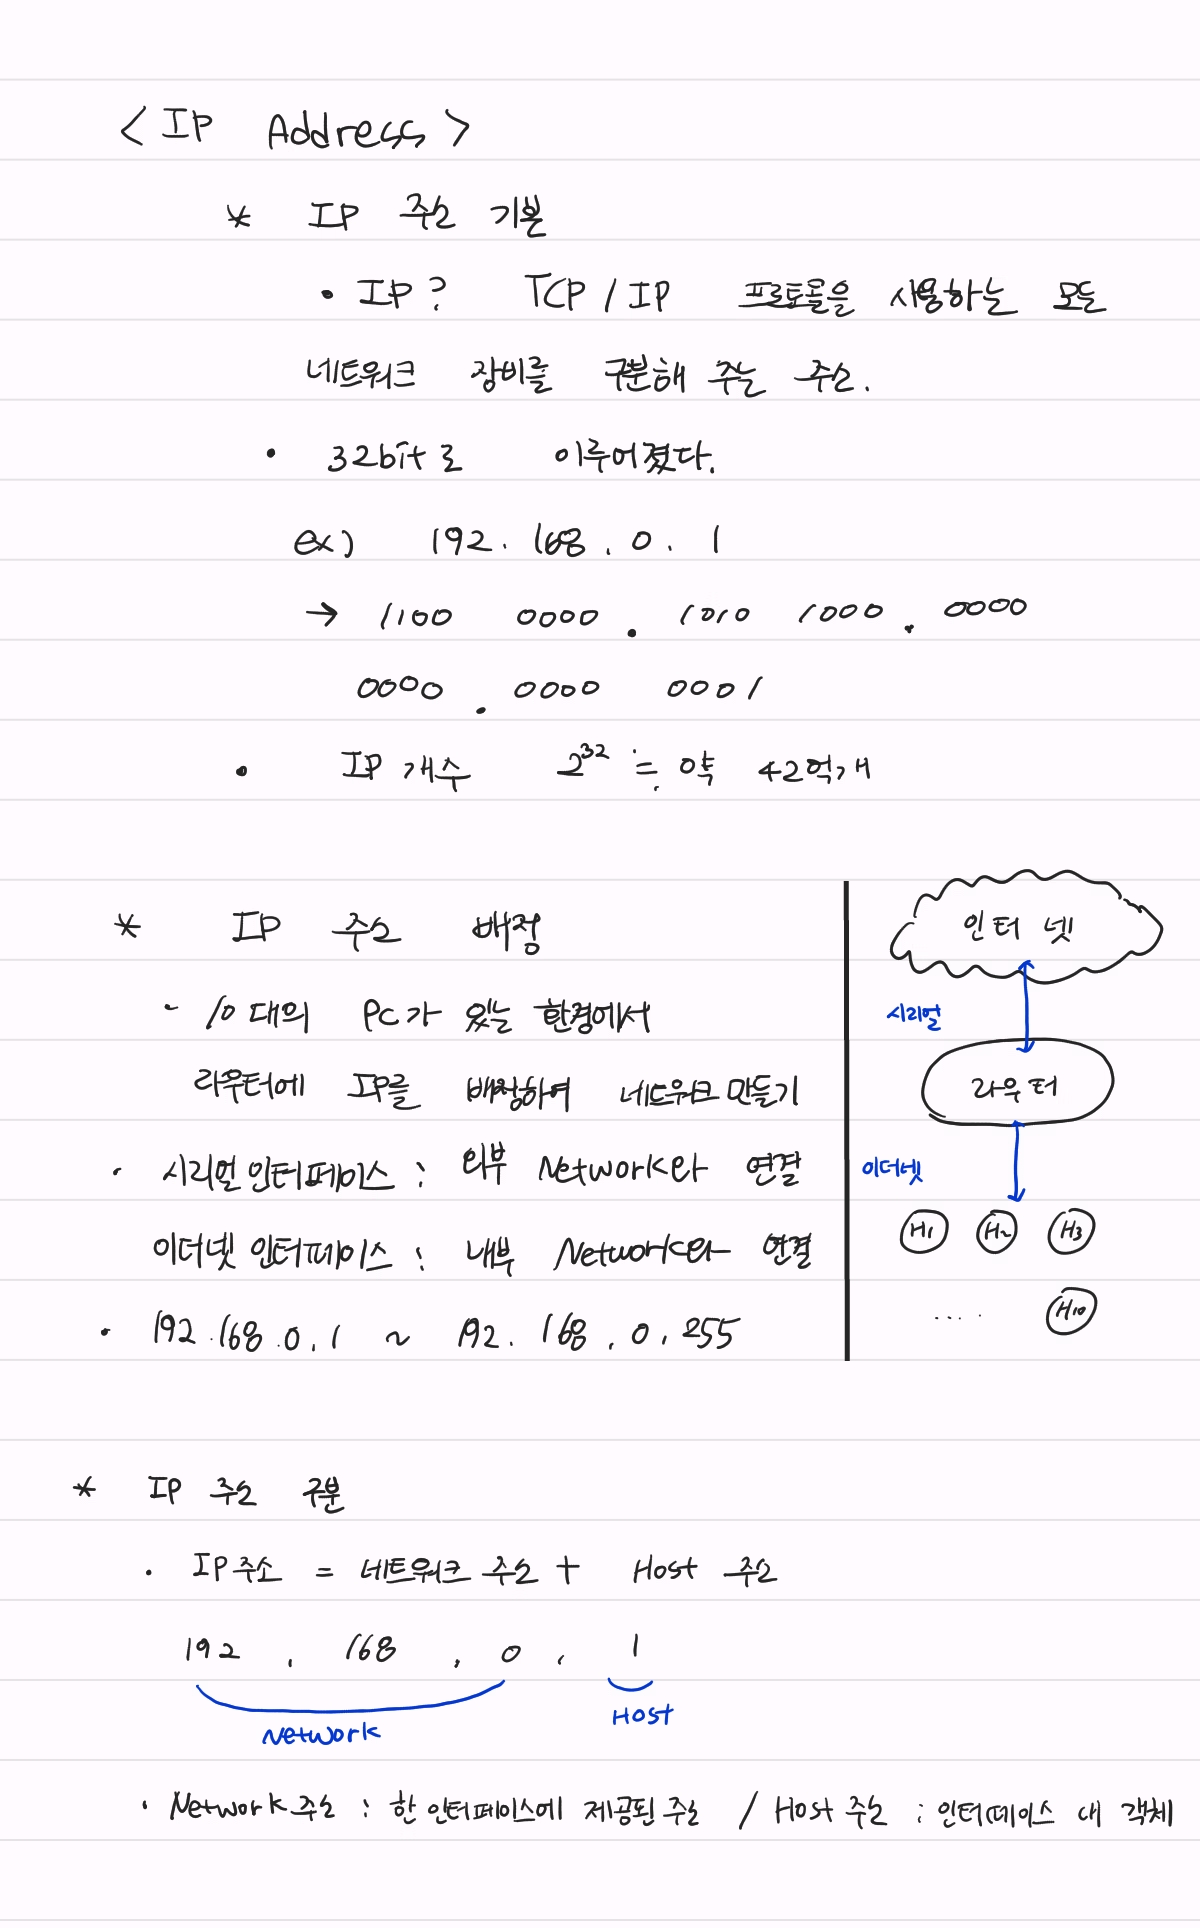 <IP Address>
* IP 주소 기본
• IP? TCP / IP 프로토콜을 사용하는 모든
네트워크 장비를 구분해 주는 주소.
• 32bit로 이루어졌다.
ex) 192. 168. 0. 1
→ 1100 0000 . 1010 1000 . 0000
0000 . 0000 0001
• IP 개수 2³² ≒ 약 42억개
* IP 주소 배정
- 10대의 PC가 있는 환경에서
라우터에 IP를 배정하여 네트워크 만들기
· 시리얼 인터페이스 : 외부 Network와 연결
이더넷 인터페이스 : 내부 Network와 연결
· 192.168.0.1 ~ 192.168.0.255
인터넷
시리얼
라우터
이더넷
H1 H2 H3
.... H10
* IP 주소 구분
· IP 주소 = 네트워크 주소 + Host 주소
192 . 168 . 0 . 1
Network Host
· Network 주소 : 한 인터페이스에 제공된 주소 / Host 주소 : 인터페이스 내 객체